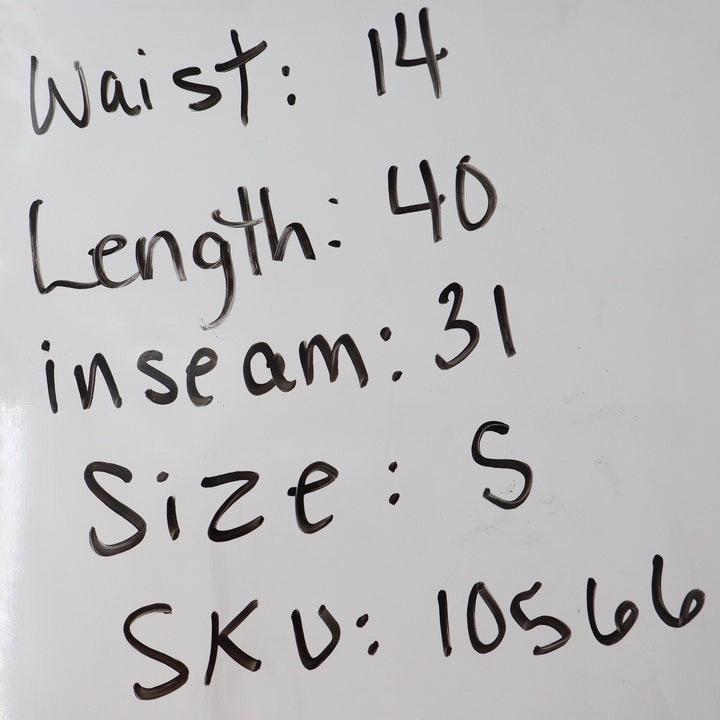 Waist: 14
Length: 40
inseam: 31
Size: S
SKU: 10566